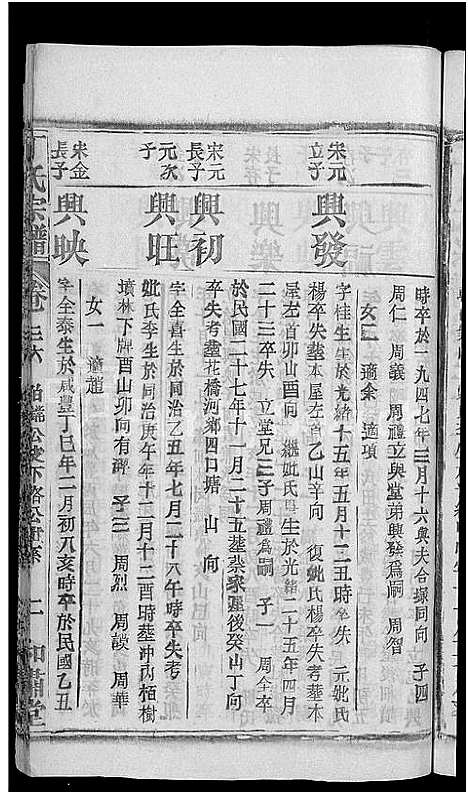 時卒於一九四七年三月十六與夫合塚同向 子四
周仁 周義 周禮立與堂弟興發爲嗣 周智
女二 適余 適項
宋元
立子
興發
字桂生生於光緒十五年十二五時卒失 元妣氏
楊卒失葬本屋左首乙山辛向 復妣氏楊卒失考葬本
屋左首卯山酉向 繼妣氏 生於光緒二十五年四月
二十三卒失 立堂兄三子周禮爲嗣 子一 周全卒
宋元
長子
興初
於民國二十七年十一月二十五葬蔡家 後癸山丁向
卒失考葬花橋河鄉四口塘 山 向
元次
子
興旺
字全喜生於同治乙丑年七月二十八午時卒失考
妣氏李生於同治庚午年十二月十二酉時葬冲內栢樹
墳林下牌酉山卯向有碑 子三 周烈 周謨 周華
女一 適趙
宋金
長子
興映
字全泰生於咸豐丁巳年二月初八亥時卒於民國乙丑
丁氏宗譜 卷 二 和